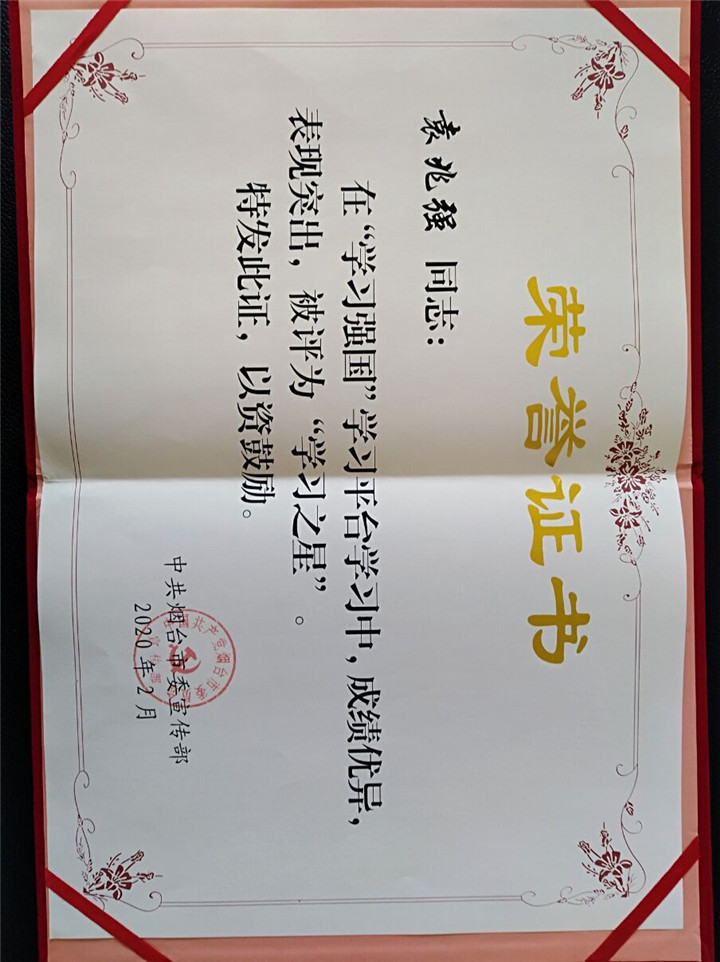 荣誉证书
袁兆强 同志：
在“学习强国”学习平台学习中，成绩优异，
表现突出，被评为“学习之星”。
特发此证，以资鼓励。
中共烟台市委宣传部
2020年2月